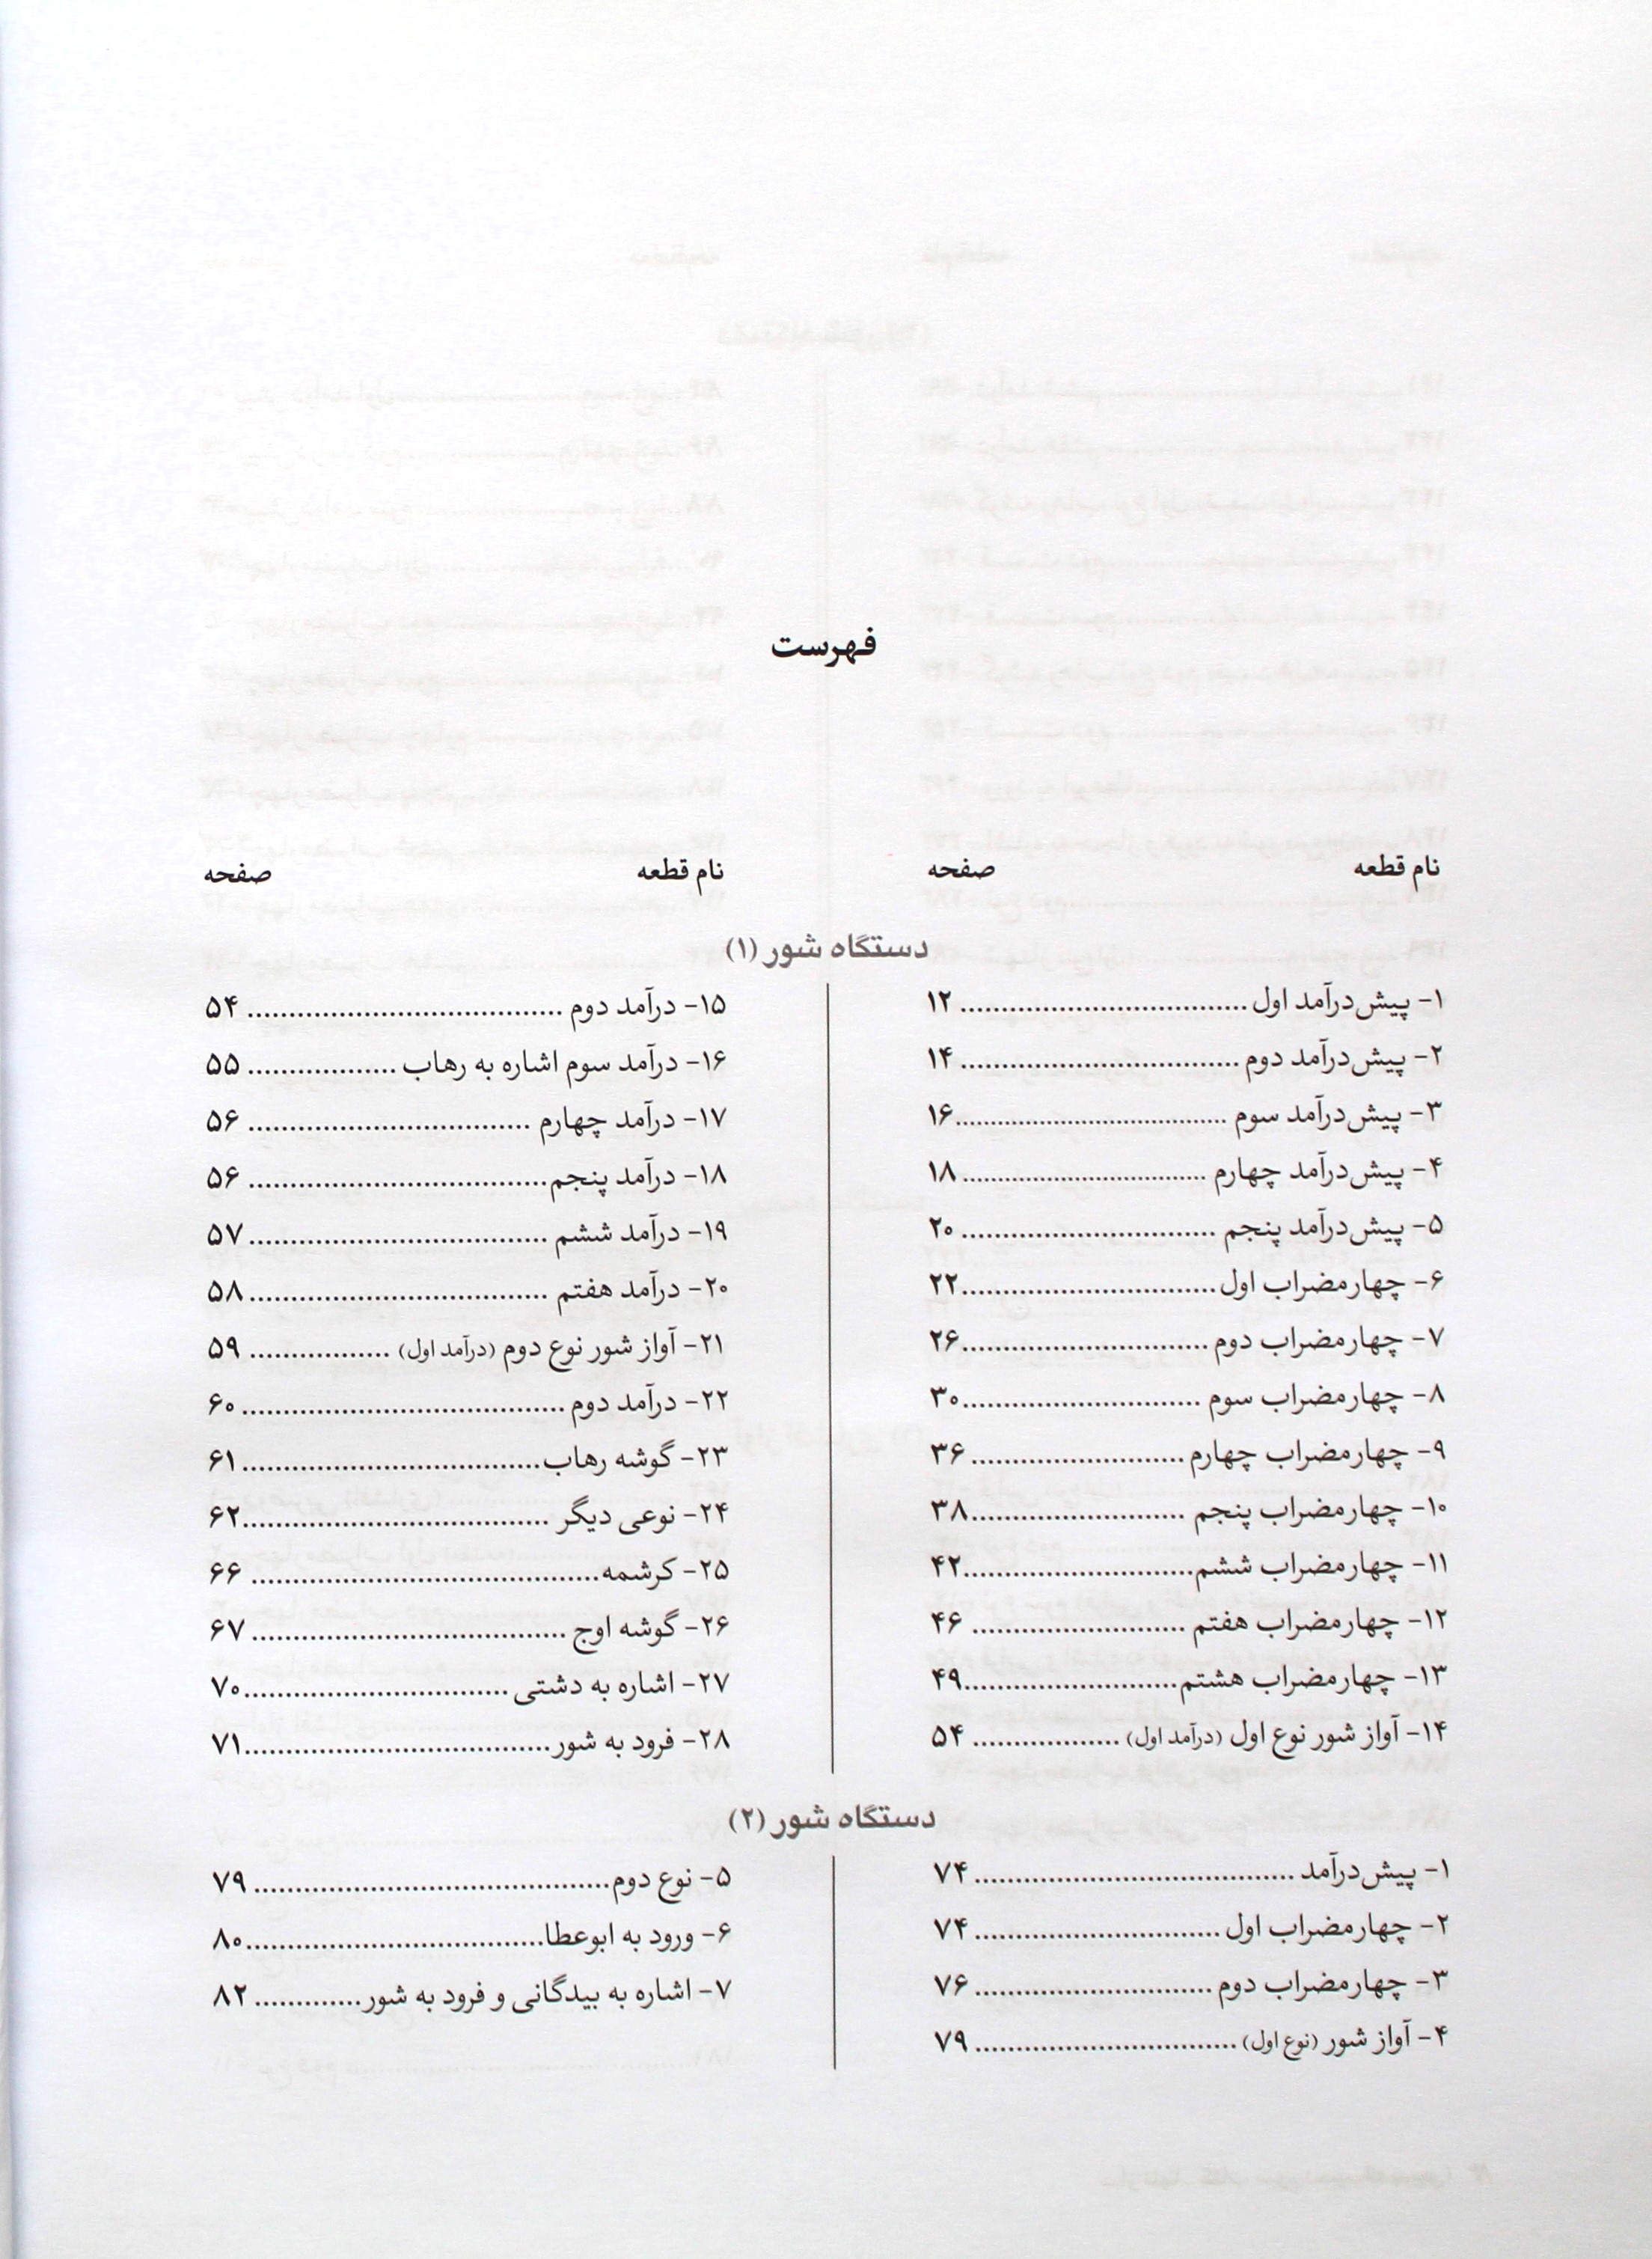 فهرست
نام قطعه صفحه
نام قطعه صفحه
دستگاه شور (۱)
۱- پیش‌درآمد اول ................................... ۱۲
۲- پیش‌درآمد دوم .................................. ۱۴
۳- پیش‌درآمد سوم ................................. ۱۶
۴- پیش‌درآمد چهارم .............................. ۱۸
۵- پیش‌درآمد پنجم ............................... ۲۰
۶- چهارمضراب اول ............................... ۲۲
۷- چهارمضراب دوم .............................. ۲۶
۸- چهارمضراب سوم ............................. ۳۰
۹- چهارمضراب چهارم .......................... ۳۶
۱۰- چهارمضراب پنجم .......................... ۳۸
۱۱- چهارمضراب ششم ............................ ۴۲
۱۲- چهارمضراب هفتم .......................... ۴۶
۱۳- چهارمضراب هشتم .......................... ۴۹
۱۴- آواز شور نوع اول (درآمد اول) .................. ۵۴
۱۵- درآمد دوم ...................................... ۵۴
۱۶- درآمد سوم اشاره به رهاب .................. ۵۵
۱۷- درآمد چهارم .................................. ۵۶
۱۸- درآمد پنجم .................................... ۵۶
۱۹- درآمد ششم .................................... ۵۷
۲۰- درآمد هفتم .................................... ۵۸
۲۱- آواز شور نوع دوم (درآمد اول) ................. ۵۹
۲۲- درآمد دوم ....................................... ۶۰
۲۳- گوشه رهاب .................................... ۶۱
۲۴- نوعی دیگر ..................................... ۶۲
۲۵- کرشمه .......................................... ۶۶
۲۶- گوشه اوج ...................................... ۶۷
۲۷- اشاره به دشتی ................................ ۷۰
۲۸- فرود به شور ..................................... ۷۱
دستگاه شور (۲)
۱- پیش‌درآمد ....................................... ۷۴
۲- چهارمضراب اول .............................. ۷۴
۳- چهارمضراب دوم ............................. ۷۶
۴- آواز شور (نوع اول) ................................ ۷۹
۵- نوع دوم ........................................... ۷۹
۶- ورود به ابوعطا .................................... ۸۰
۷- اشاره به بیدگانی و فرود به شور ............. ۸۲